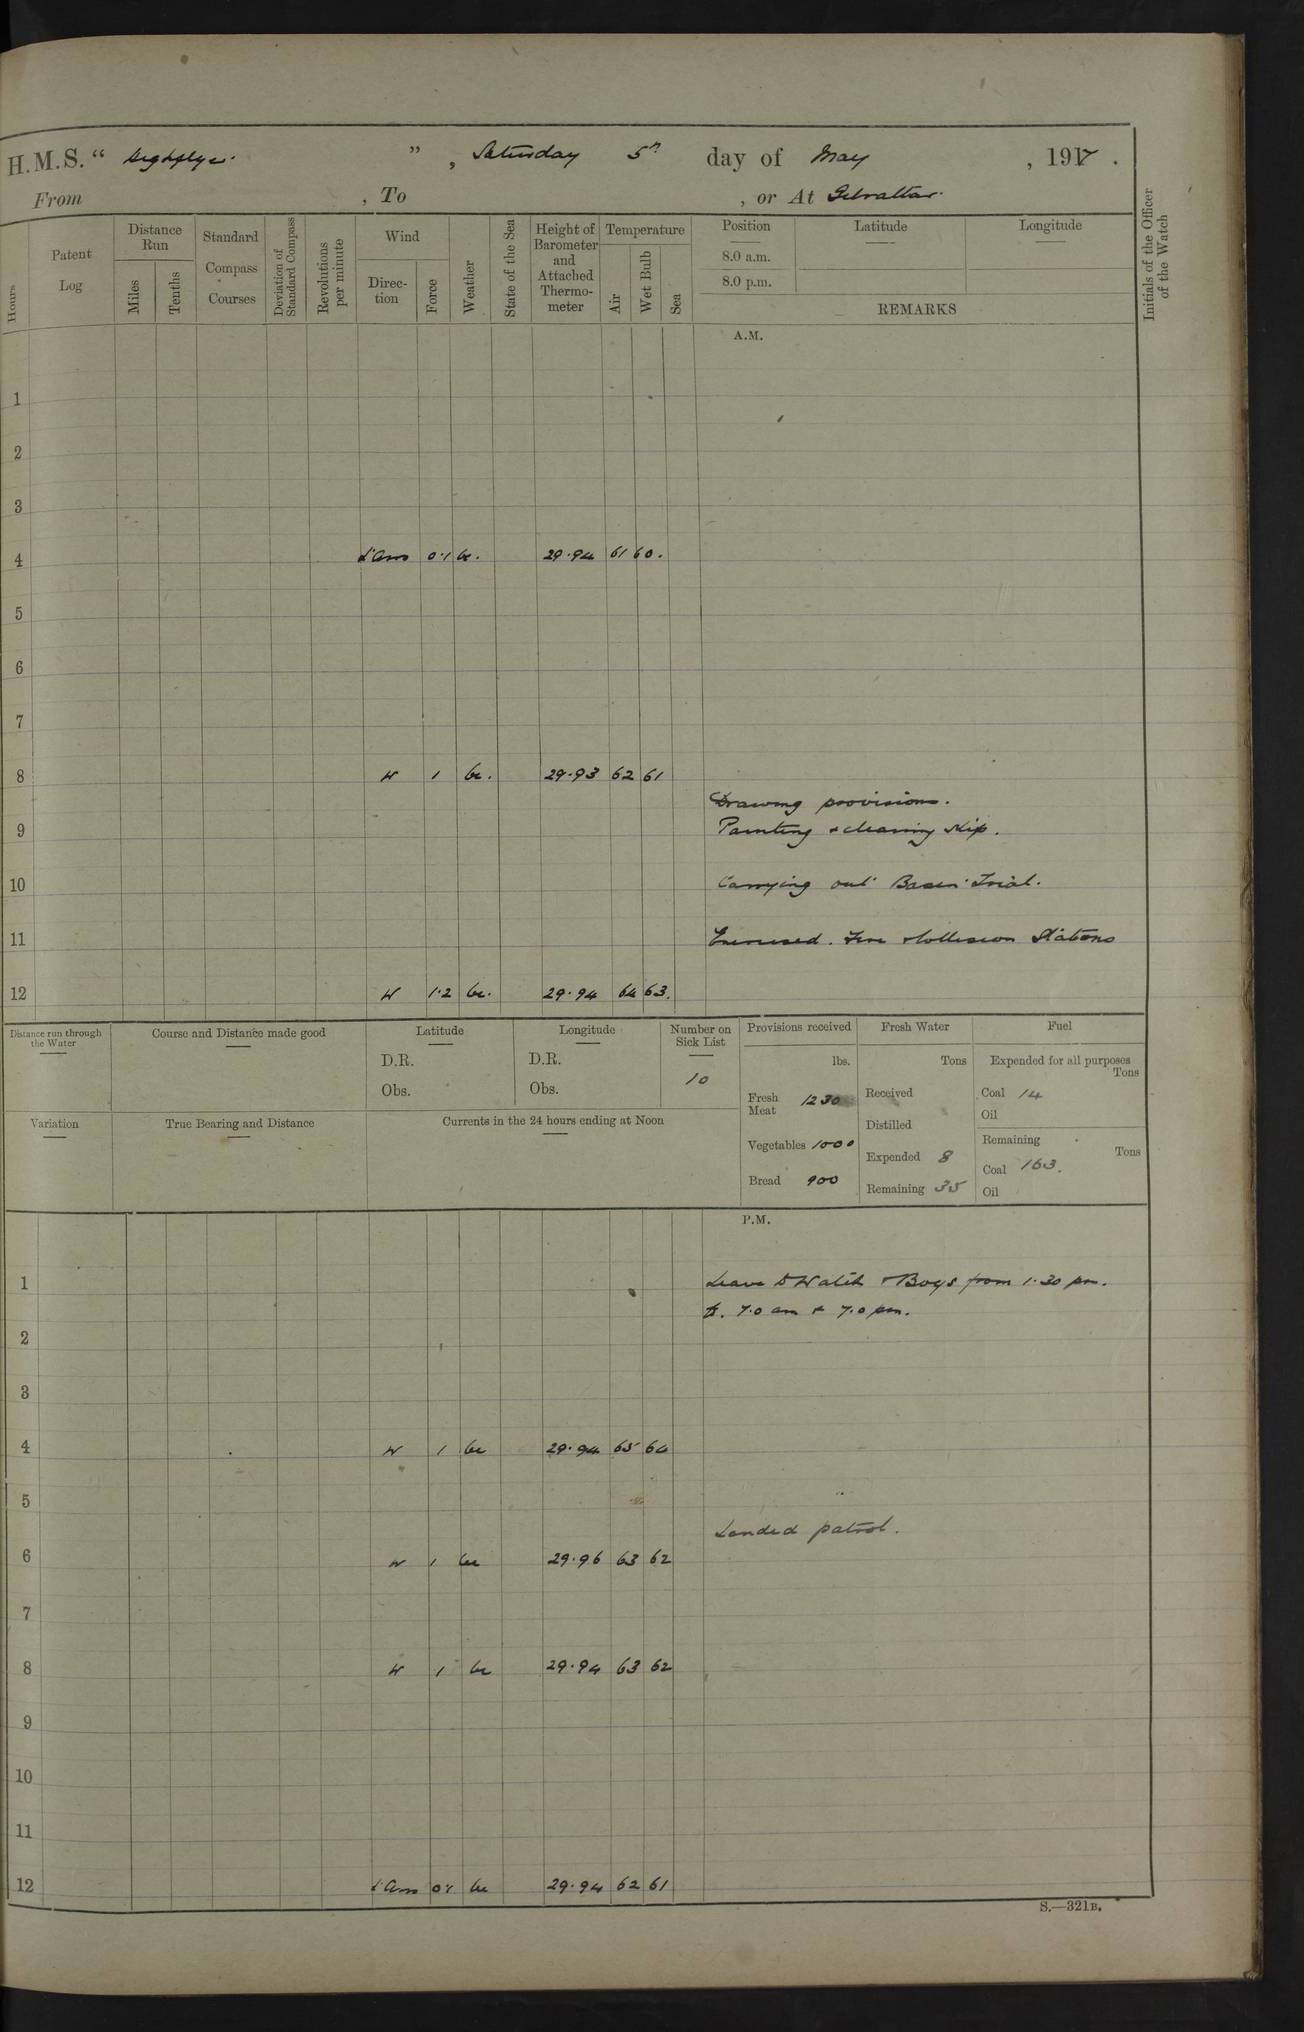 H.M.S. “ Highflyer ” , Saturday 5th day of May , 1917 .
From , To , or At Gibraltar
Hours
Patent Log
Distance Run
Miles
Tenths
Standard Compass Courses
Deviation of Standard Compass
Revolutions per minute
Wind
Direc-tion
Force
Weather
State of the Sea
Height of Barometer and Attached Thermo-meter
Temperature
Air
Wet Bulb
Sea
Position
8.0 a.m.
8.0 p.m.
Latitude
Longitude
REMARKS
Initials of the Officer of the Watch
A.M.
1
2
3
4 L'Airs 0·1 bc. 29·94 61 60.
5
6
7
8 W 1 bc. 29·93 62 61
Drawing provisions.
9 Painting & cleaning ship.
10 Carrying out Basin Trial.
11 Exercised. Fire & Collision Stations
12 W 1·2 bc. 29·94 64 63.
Distance run through the Water
Course and Distance made good
Latitude
D.R.
Obs.
Longitude
D.R.
Obs.
Number on Sick List
10
Variation
True Bearing and Distance
Currents in the 24 hours ending at Noon
Provisions received
lbs.
Fresh Meat 1230
Vegetables 1000
Bread 900
Fresh Water
Tons
Received
Distilled
Expended 8
Remaining 35
Fuel
Expended for all purposes
Tons
Coal 14
Oil
Remaining
Tons
Coal 163.
Oil
P.M.
1 Leave to Watch & Boys from 1·30 pm.
to. 7.0 am & 7.0 pm.
2
3
4 W 1 bc 29·94 65 64
5
Landed patrol.
6 W 1 bc 29·96 63 62
7
8 W 1 bc 29·94 63 62
9
10
11
12 L'Airs 0·1 bc 29·94 62 61
S.—321B.